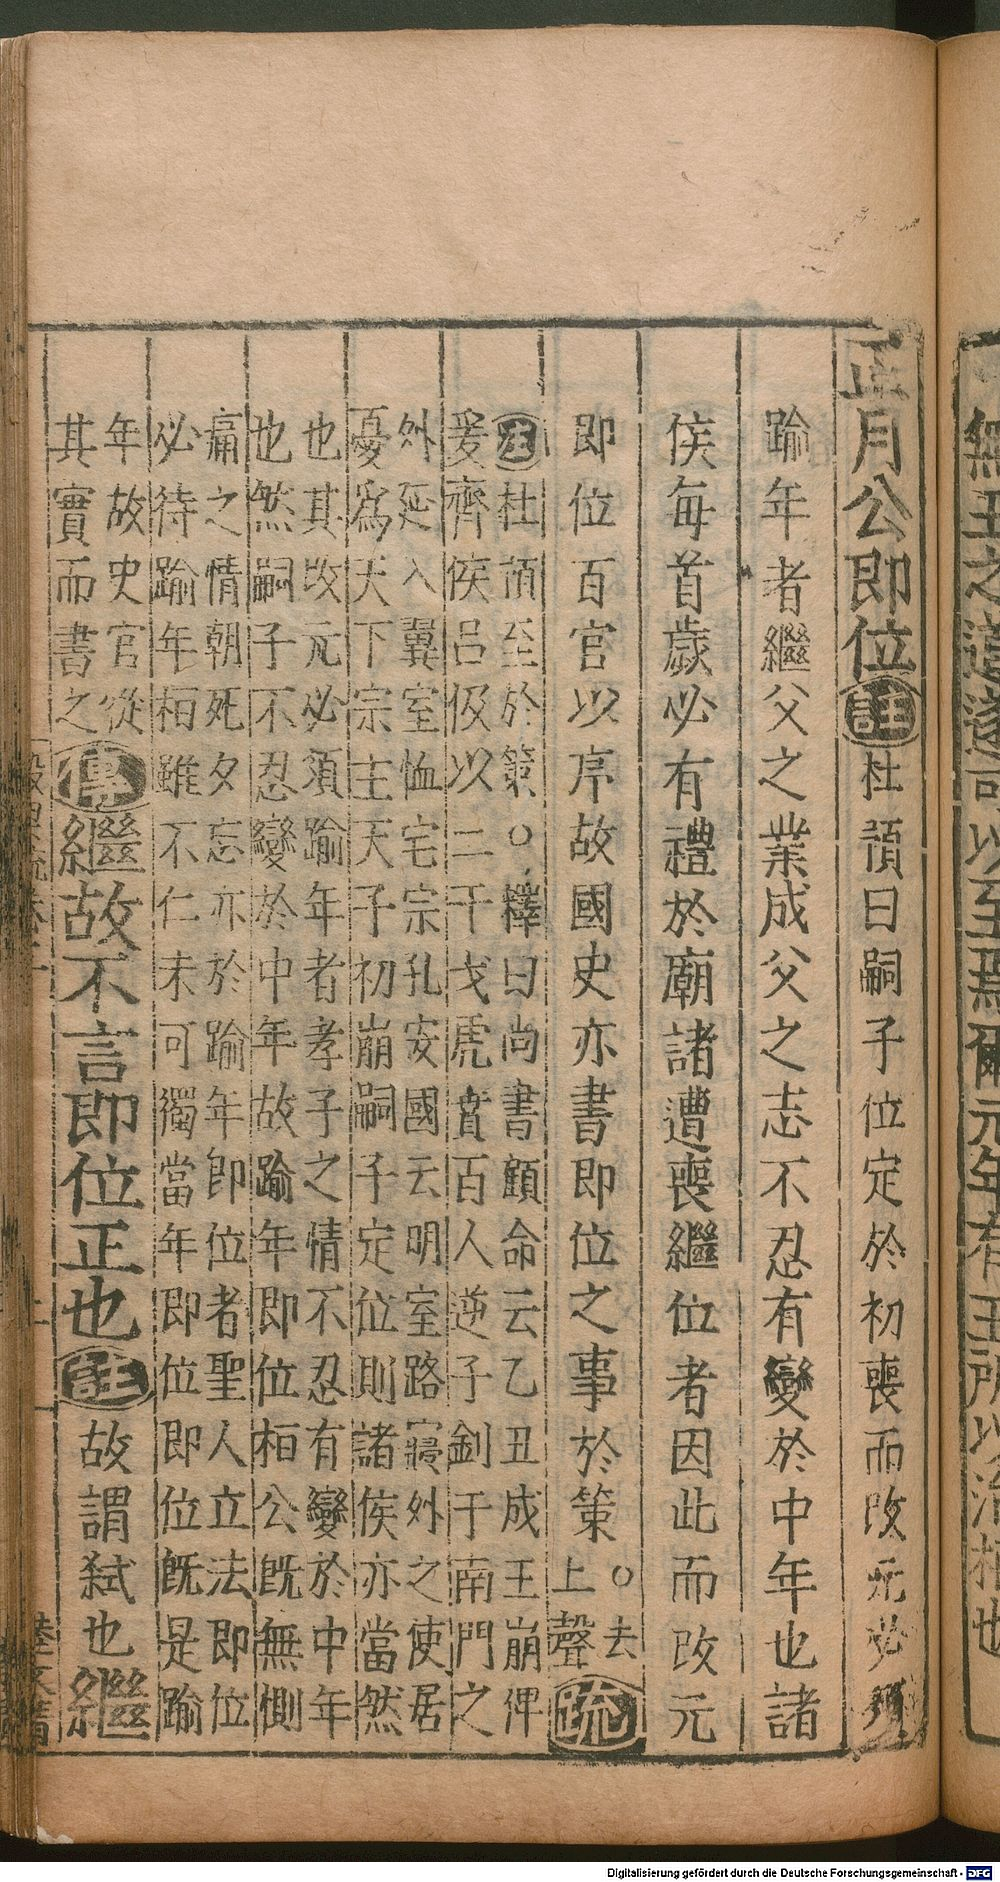 正月公即位註杜預曰嗣子位定於初喪而改元必須
踰年者繼父之業成父之志不忍有變於中年也諸
侯每首歲必有禮於廟諸遭喪繼位者因此而改元
即位百官以序故國史亦書即位之事於策○去上聲疏
注杜預至於策○釋曰尚書顧命云乙丑成王崩俾
爰齊侯呂伋以二干戈虎賁百人逆子釗于南門之
外延入翼室恤宅宗孔安國云明室路寢外之使居
憂爲天下宗主天子初崩嗣子定位則諸侯亦當然
也其改元必須踰年者孝子之情不忍有變於中年
也然嗣子不忍變於中年故踰年即位桓公既無惻
痛之情朝死夕忘亦於踰年即位者聖人立法即位
必待踰年桓雖不仁未可獨當年即位即位既是踰
年故史官從
其實而書之傳繼故不言即位正也註故謂弑也繼
無王之道遂可以至焉爾元年有王所以治桓也
Digitalisierung gefördert durch die Deutsche Forschungsgemeinschaft - DFG